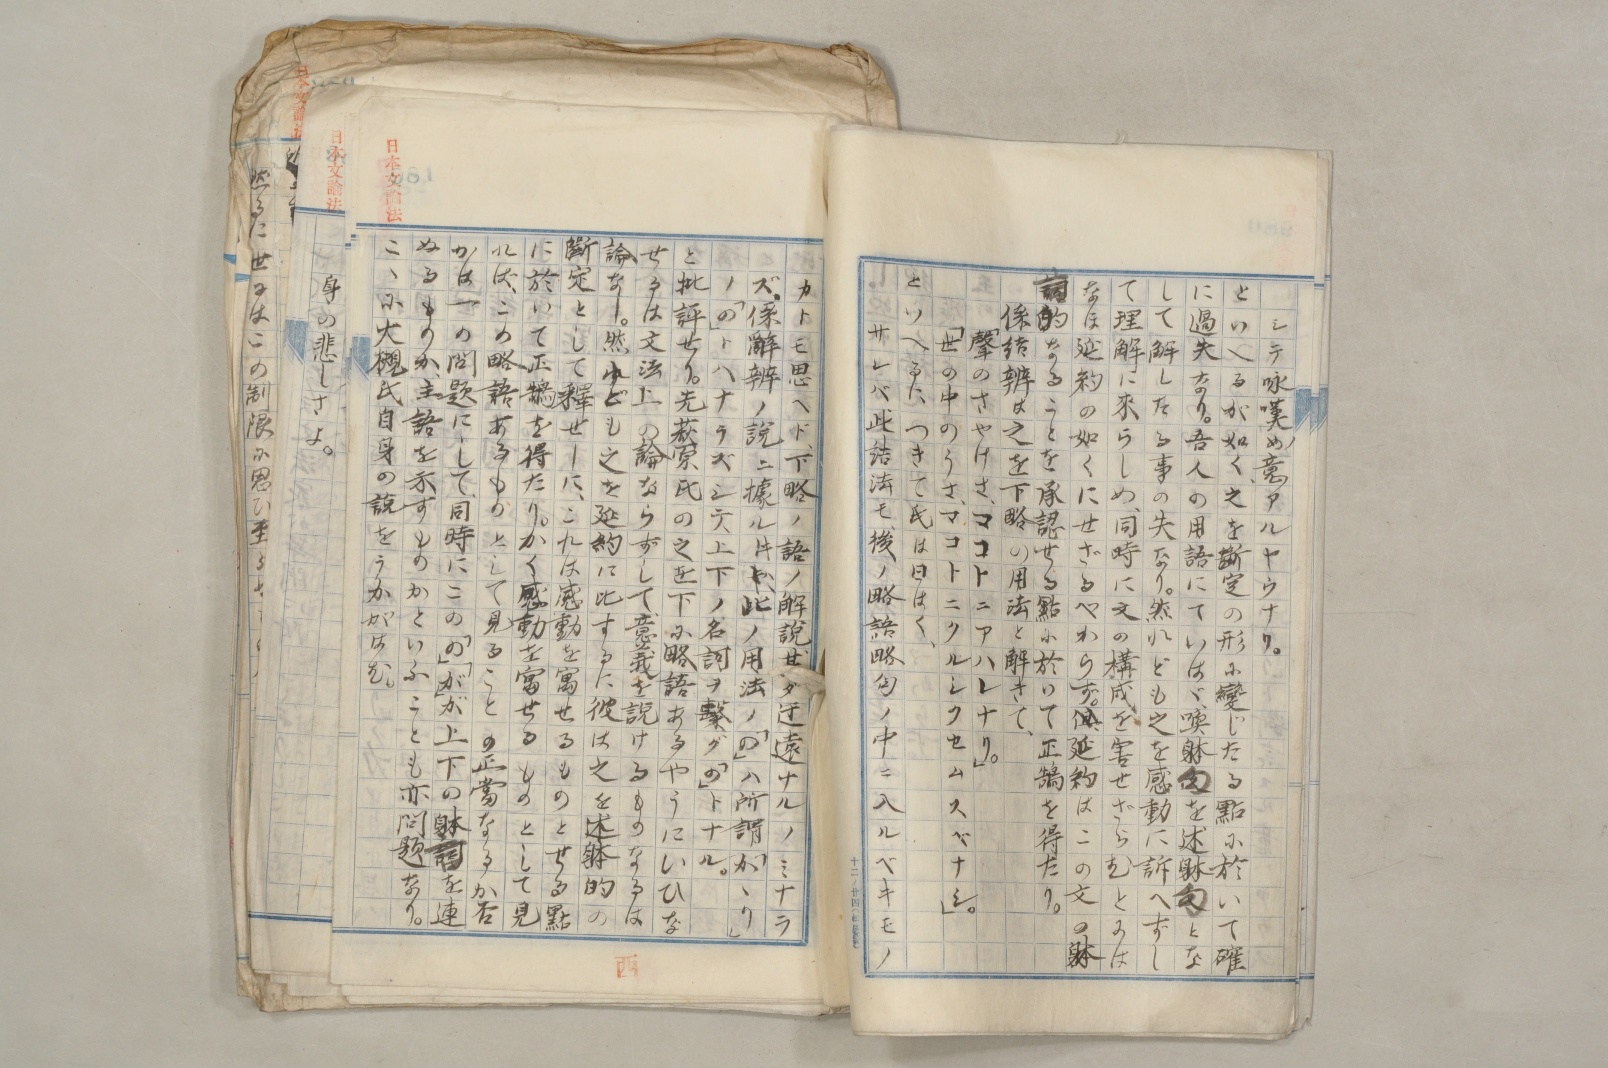 シテ咏嘆ノ意アルヤウナリ。
といへるが如く、之を斷定の形に變じたる點に於いて確
に過失なり。吾人の用語にていはゞ、喚躰句を述躰句とな
して解したる事の失なり。然れども之を感動に訴へずし
て理解に來らしめ、同時に文の構成を害せざらむとには
なほ延約の如くにせざるべからず。延約はこの文の躰
的なることを承認せる點に於いて正鵠を得たり。
係結辨は之を下略の用法と解きて、
「聲のさやけさ、マコトニアハレナリ。」
「世の中のうさ、マコトニクルシクセムスベナシ。」
といへるにつきて氏は曰はく、
サレバ此結法モ、後ノ略語略句ノ中ニ入ルベキモノ
カトモ思ヘド、下略ノ語ノ解説甚ダ迂遠ナルノミナラ
ズ、係辭辨ノ説ニ據ル片ハ、此ノ用法ノ「の」ハ所謂「かゝり」
ノ「の」トハナラズシテ、上下ノ名詞ヲ繋グ「の」トナル。
と批評せり。先萩原氏の之を下に略語あるやうにいひな
せるは文法上の論ならずして、意義を説けるものなるは
論なし。然れども之を延約に比するに彼は之を述躰的の
斷定として釋せしに、これは感動を寓せるものとせる點
に於いて正鵠を得たり。かく感動を寓せるものとして見
れば、この略語あるものとして見ることの正當なるか否
かは一の問題にして、同時にこの「の」「が」が上下の躰詞を連
ぬるものか、主語を示すものかといふことも亦問題なり。
こゝに大槻氏自身の説をうかがはむ。
身の悲しさよ。
然るに世にはこの制限に思ひ至ら
日本文論法
日本文論法
日本文論法
西